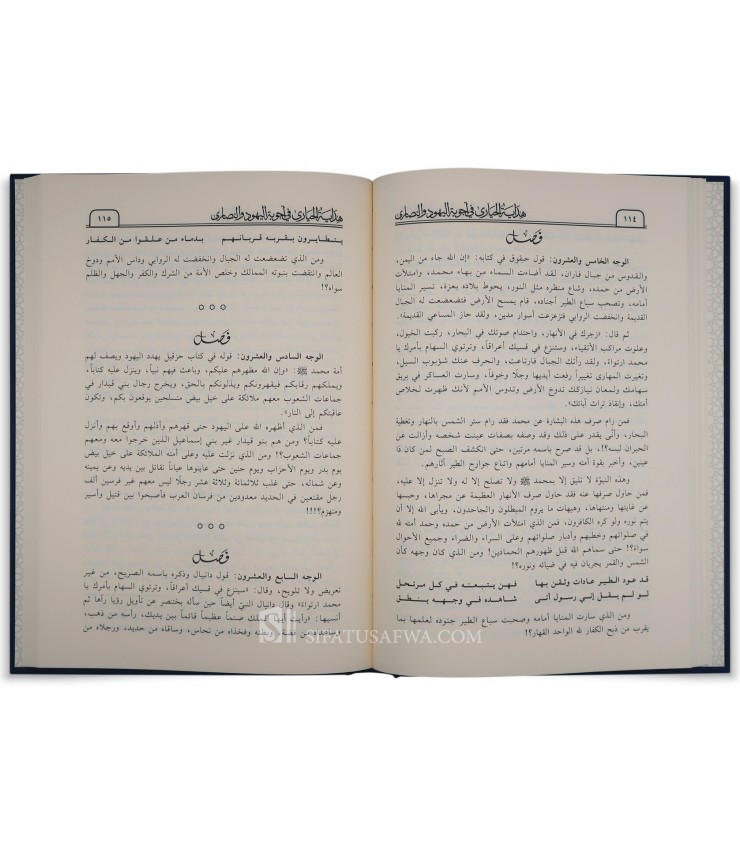 ١١٤
هداية الحيارى في أجوبة اليهود والنصارى
فصل
الوجه الخامس والعشرون: قول حبقوق في كتابه: «إن الله جاء من اليمن،
والقدوس من جبال فاران، لقد أضاءت السماء من بهاء محمد، وامتلأت
الأرض من حمده، وشاع منظره مثل النور، يحوط بلاده بعزة، تسير المنايا
أمامه، وتصحب سباع الطير أجناده، قام يمسح الأرض فتضعضعت له الجبال
القديمة وانخفضت الروابي فتزعزعت أسوار مدين، ولقد حاز المساعي القديمة».
ثم قال: «زجرك في الأنهار، واحتدام صوتك في البحار، ركبت الخيول،
وعلوت مراكب الأتقياء، وستنزع في قسيك أعراقاً، وترتوي السهام بأمرك يا
محمد ارتواءً، ولقد رأتك الجبال فارتاعت، وانحرف عنك شؤبوب السيل،
وتغيرت المهارى تغييراً رفعت أيديها وجلاً وخوفاً، وسارت العساكر في بريق
سهامك ولمعان نيازكك تدوخ الأرض وتدوس الأمم لأنك ظهرت لخلاص
أمتك، وإنقاذ تراث آبائك».
فمن رام صرف هذه البشارة عن محمد فقد رام ستر الشمس بالنهار وتغطية
البحار، وأنَّى يقدر على ذلك وقد وصفه بصفات عينت شخصه وأزالت عن
الحيران لبسه؟!، بل قد صرح باسمه مرتين، حتى انكشف الصبح لمن كان ذا
عينين، وأخبر بقوة أمته وسير المنايا أمامهم واتباع جوارح الطير آثارهم.
وهذه النبوّة لا تليق إلا بمحمد ﷺ ولا تصلح إلا له ولا تنزل إلا عليه،
فمن حاول صرفها عنه فقد حاول صرف الأنهار العظيمة عن مجراها، وحبسها
عن غايتها ومنتهاها، وهيهات ما يروم المبطلون والجاحدون، ويأبى الله إلا أن
يتم نوره ولو كره الكافرون، فمن الذي امتلأت الأرض من حمده وحمد أمته لله
في صلواتهم وخطبهم وأدبار صلواتهم وعلى السراء والضراء وجميع الأحوال
سواءً؟! حتى سماهم الله قبل ظهورهم الحمادين! ومن الذي كان وجهه كأن
الشمس والقمر يجريان فيه في ضيائه ونوره؟!
قد عود الطير عادات وثقن بها فهن يتبعنه في كل مرتحل
لو لم يقل إني رسول أتى شاهده في وجهه ينطق
ومن الذي سارت المنايا أمامه وصحبت سباع الطير جنوده لعلمها بما
يقرب من ذبح الكفار لله الواحد القهار؟!
هداية الحيارى في أجوبة اليهود والنصارى
١١٥
يتطايرون بقربه قربانهم بدماء من علقوا من الكفار
ومن الذي تضعضعت له الجبال وانخفضت له الروابي وداس الأمم ودوخ
العالم وانتقضت بنبوته الممالك وخلص الأمة من الشرك والكفر والجهل والظلم
سواه؟!
فصل
الوجه السادس والعشرون: قوله في كتاب حزقيل يهدد اليهود ويصف لهم
أمة محمد ﷺ: «وإن الله مظهرهم عليكم، وباعث فيهم نبياً، وينزل عليه كتاباً،
ويملكهم رقابكم فيقهرونكم ويذلونكم بالحق، ويخرج رجال بني قيدار في
جماعات الشعوب معهم ملائكة على خيل بيض متسلحين يوقعون بكم، وتكون
عاقبتكم إلى النار».
فمن الذي أظهره الله على اليهود حتى قهرهم وأذلهم وأوقع بهم وأنزل
عليه كتاباً؟ ومن هم بنو قيدار غير بني إسماعيل الذين خرجوا معه ومعهم
جماعات الشعوب؟! ومن الذي نزلت عليه وعلى أمته الملائكة على خيل بيض
يوم بدر ويوم الأحزاب ويوم حنين حتى عاينوها عياناً تقاتل بين يديه وعن يمينه
وعن شماله، حتى غلب ثلاثمائة وثلاثة عشر رجلًا ليس معهم غير فرسين ألف
رجل مقنعين في الحديد معدودين من فرسان العرب فأصبحوا بين قتيل وأسير
ومنهزم؟!!!
فصل
الوجه السابع والعشرون: قول دانيال وذكره باسمه الصريح، من غير
تعريض ولا تلويح، وقال: «سينزع في قسيك أعراقاً، وترتوي السهام بأمرك يا
محمد ارتواءً» وقال دانيال النبيّ أيضاً حين سأله بختنصر عن تأويل رؤيا رآها ثم
أنسيها: «رأيت أيها الملك صنماً عظيماً قائماً بين يديك، رأسه من ذهب،
وساعداه من فضة وبطنه وفخذاه من نحاس، وساقاه من حديد، ورجلاه من
SIFATUSAFWA.COM